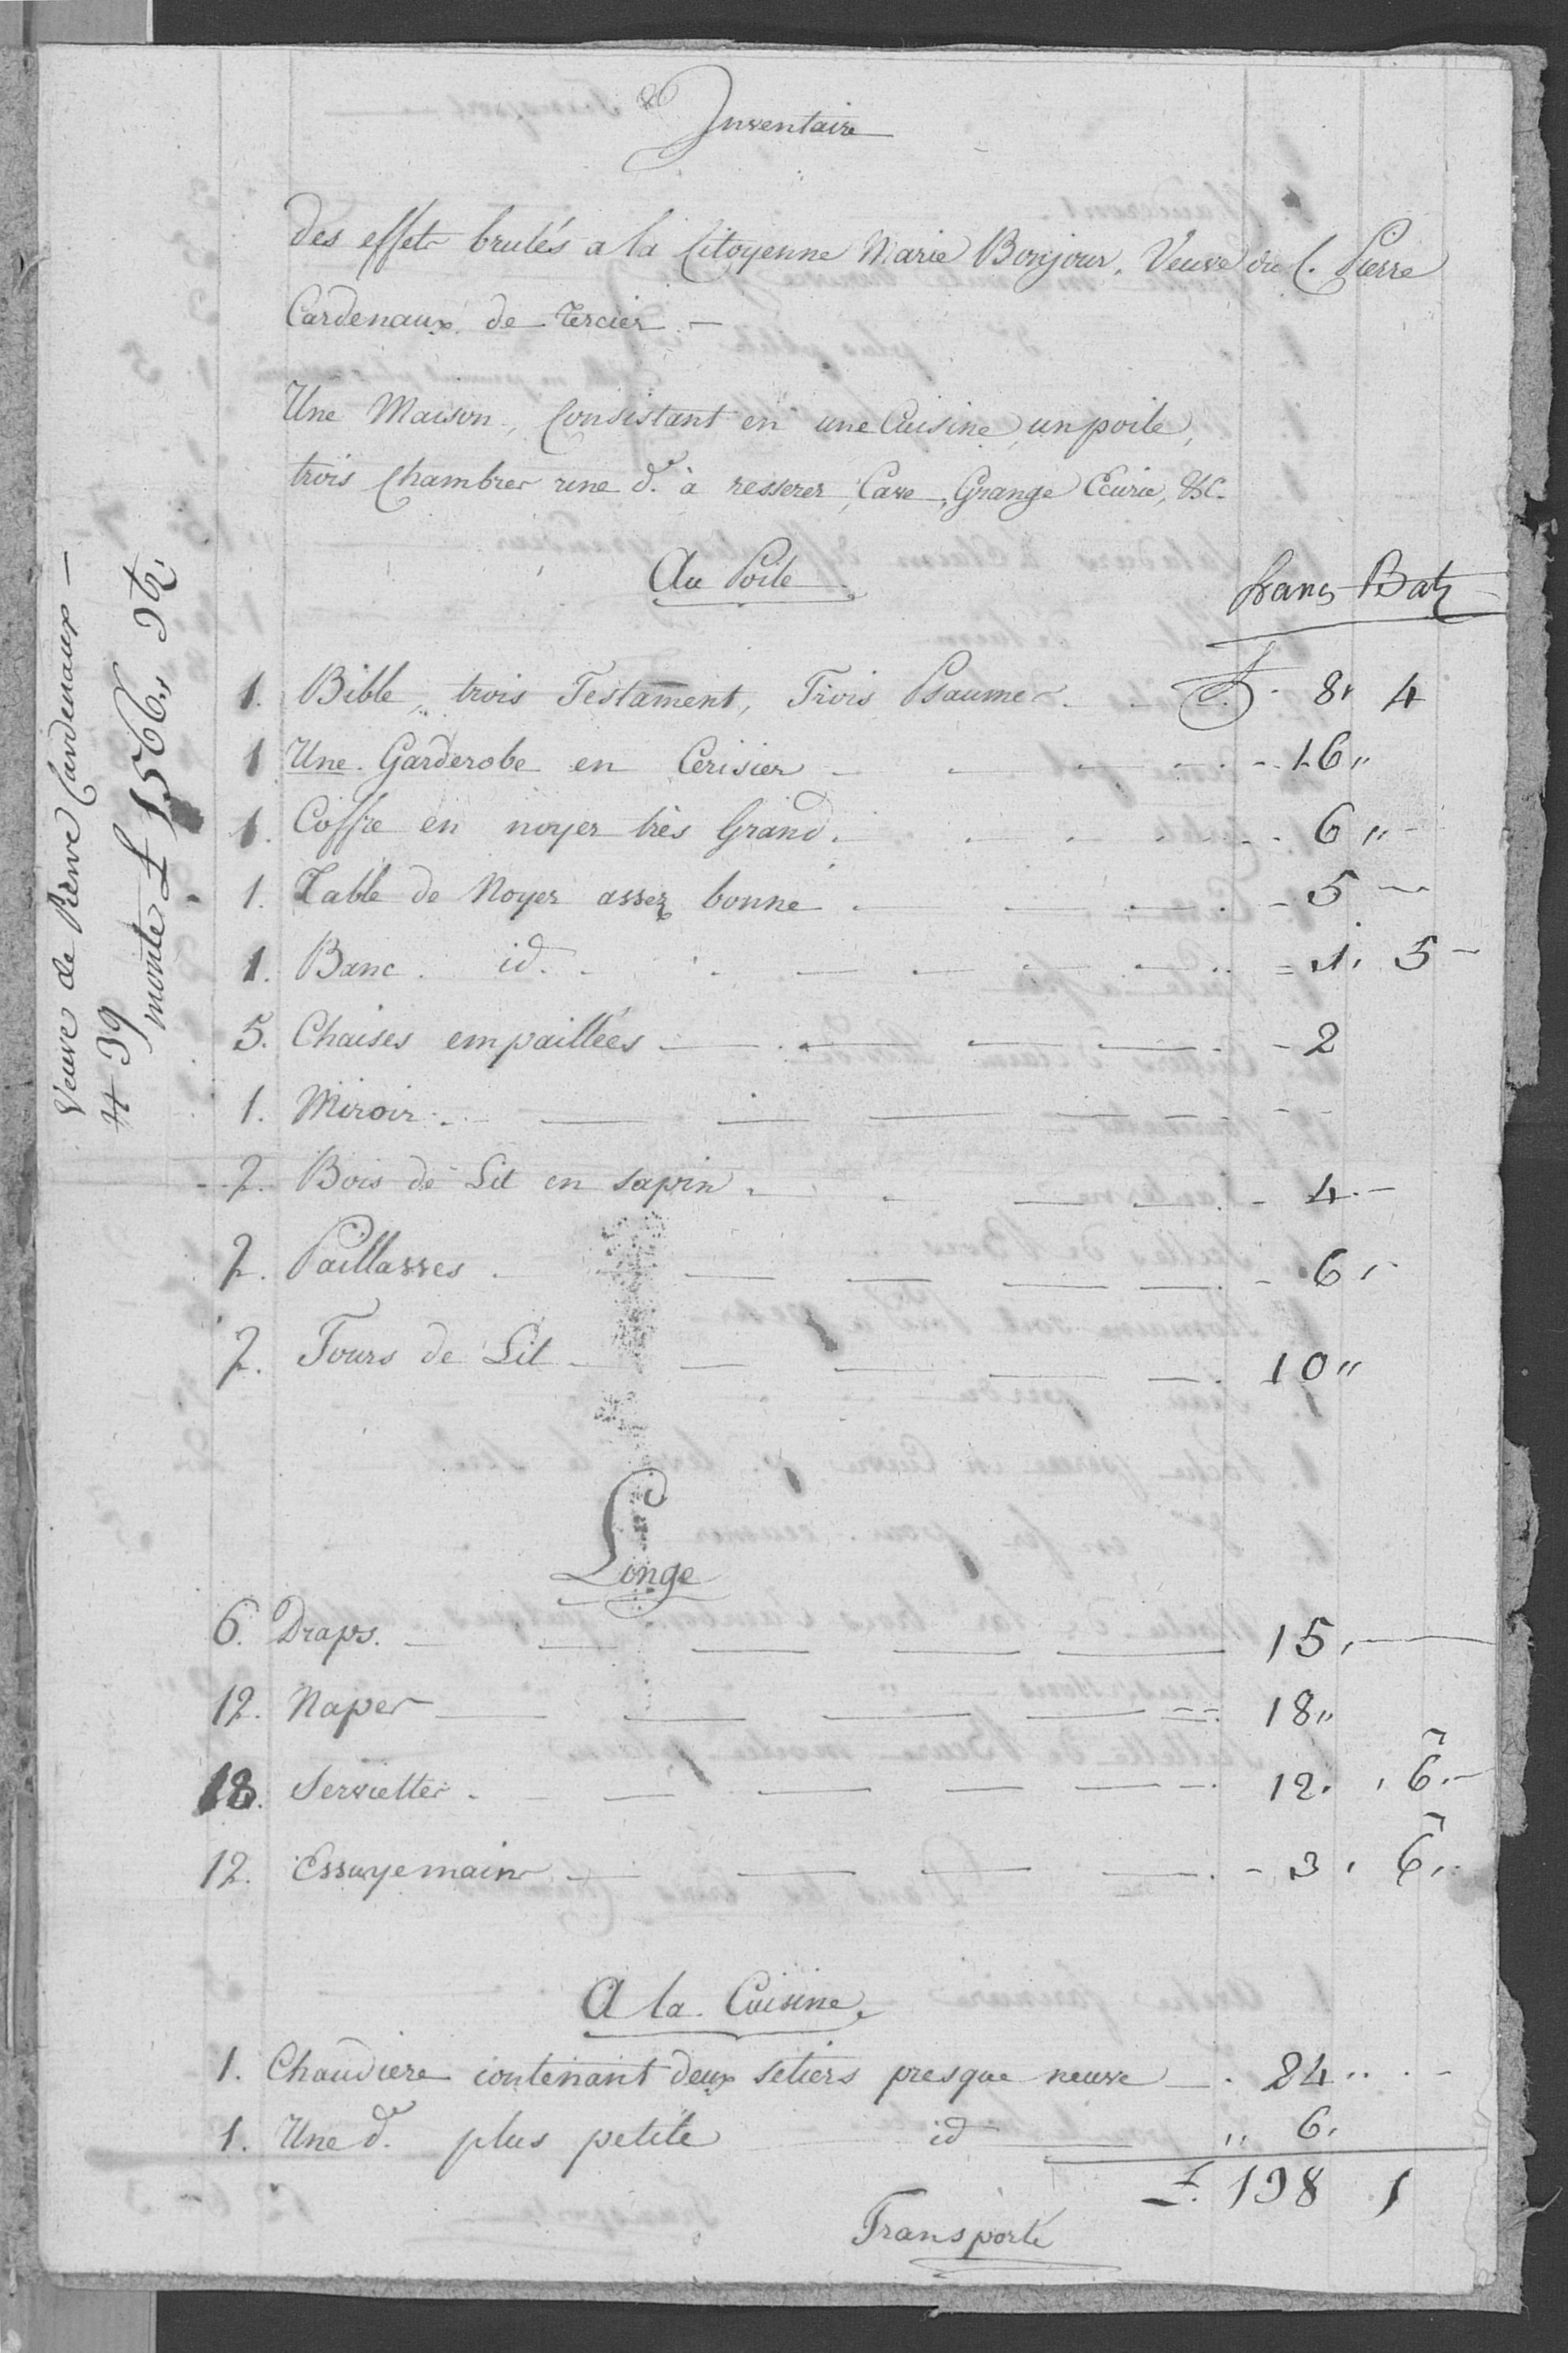 Inventaire
des effets brulés a la Citoyenne Marie Bonjour, Veuve du C. Pierre
Cardenaux de Tercier. —
Une Maison, Consistant en une Cuisine, un poile,
trois Chambres une d.º à resserer, Cave, Grange Ecurie, &c.
Au Poile
francs Batz
1. Bible, trois Testament, Trois Psaumes. 8 4
1 Une Garderobe en Cerisier 16 "
1. Coffre en noyer très Grand. 6 "
1. Table de Noyer assez bonne 5 —
1. Banc. id. 1. 5 —
5. Chaises empaillées 2
1. Miroir
2. Bois de Lit en sapin 4. —
2. Paillasses 6
2. Tours de Lit 10 "
Longe
6. Draps. 15. —
12. Napes 18 "
18. Serviettes 12. 6. —
12. Essuyemains 3. 6.
A la Cuisine
1. Chaudiere contenant deux setiers presque neuve 84
1. Une d.º plus petite id 6.
198 1
Transporté
Veuve de Pierre Cardenaux —
# 39
monte £ 1566 " 9 bz.